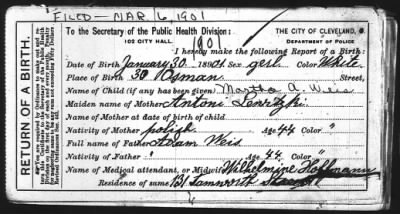 FILED — MAR. 6, 1901
RETURN OF A BIRTH.
To the Secretary of the Public Health Division:
102 CITY HALL.
THE CITY OF CLEVELAND, O.
DEPARTMENT OF POLICE
1901
I hereby make the following Report of a Birth:
Date of Birth January 30 1901 Sex gerl Color White
Place of Birth 30 Osman Street,
Name of Child (if any has been given) Martha A. Weis
Maiden name of Mother Antoni
Name of Mother at date of birth of child
Nativity of Mother polish Age 44 Color "
Full name of Father Adam Weis
Nativity of Father " Age 44 Color "
Name of Medical attendant, or Midwife Wilhelmine Hoffmann
Residence of same 131 Tamworth